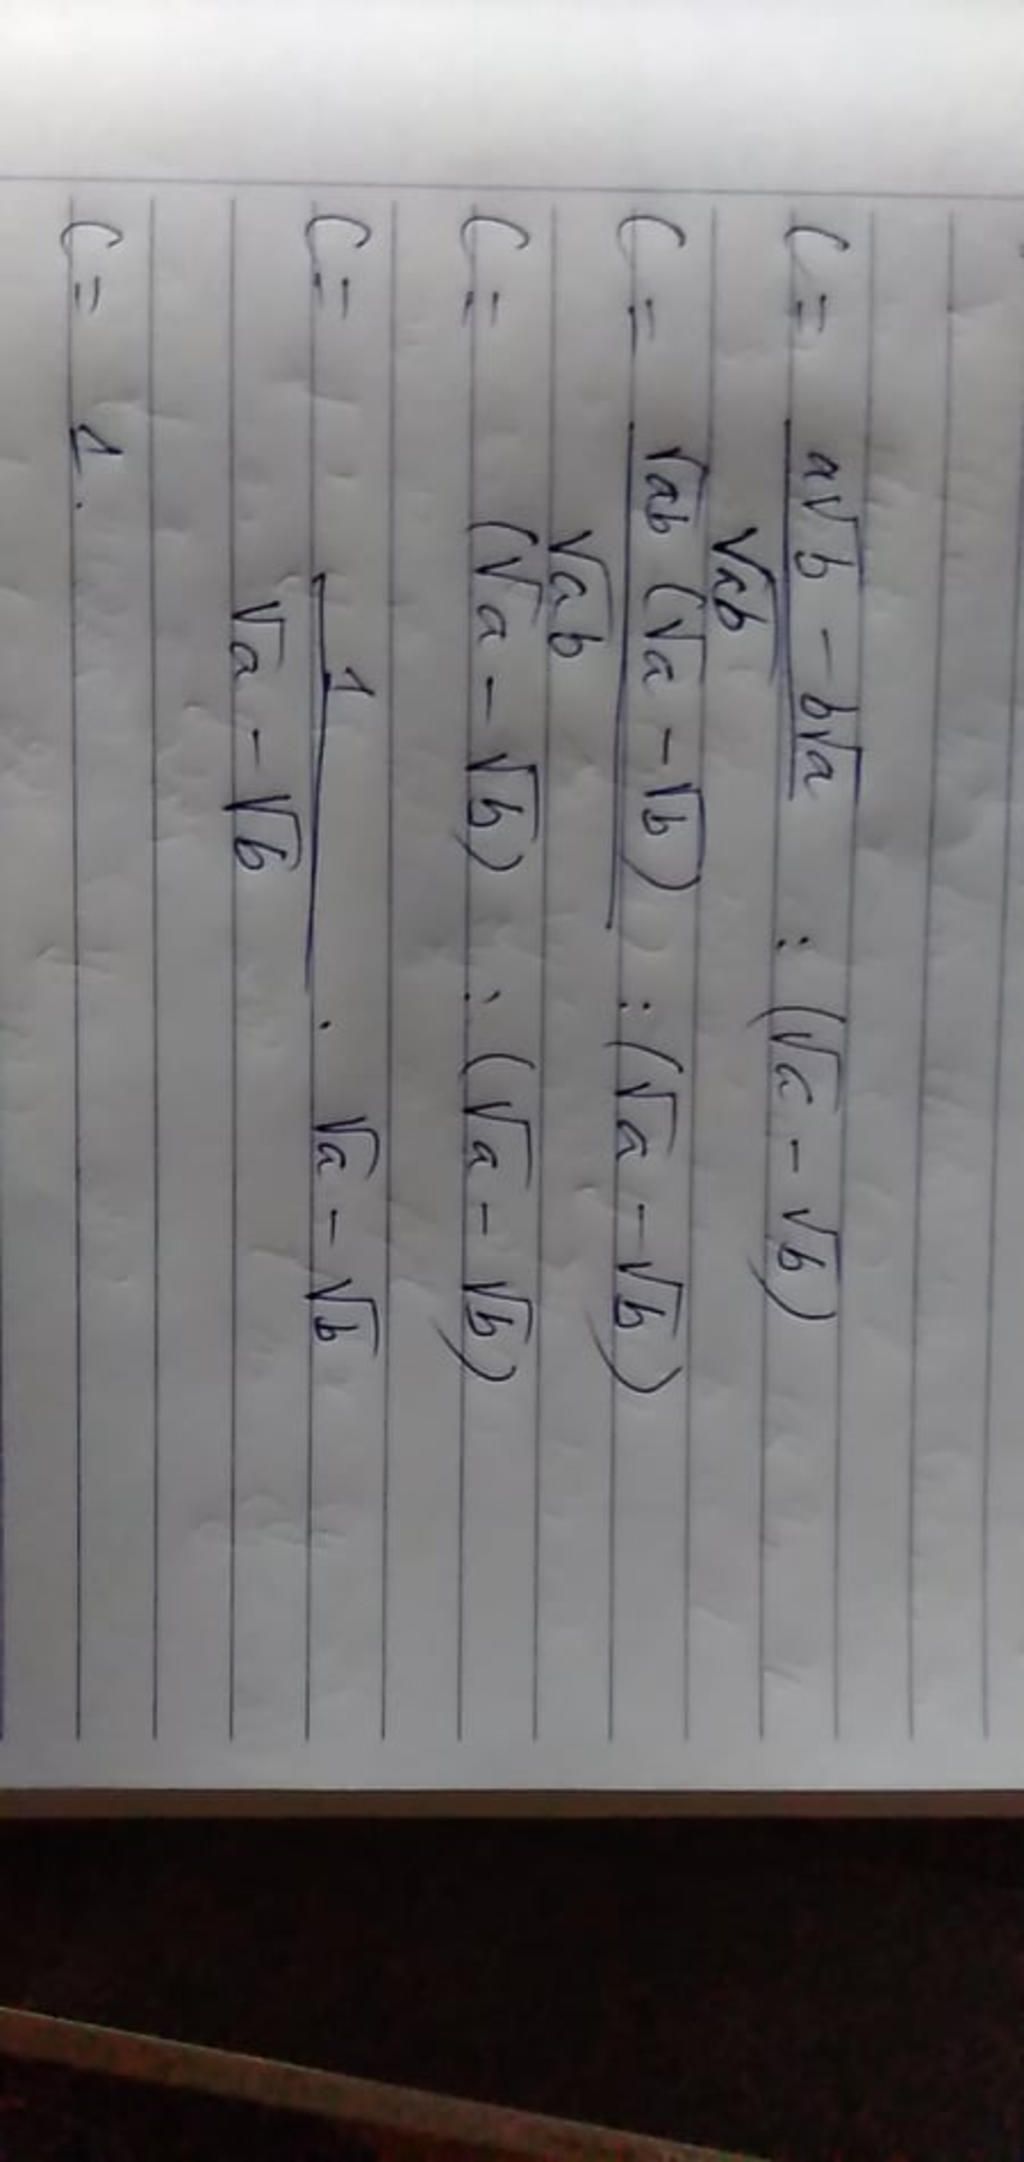 C = a√b - b√a : (√a - √b)
√ab
C = √ab (√a - √b) : (√a - √b)
√ab
C = (√a - √b) : (√a - √b)
C = 1 . √a - √b
√a - √b
C = 1.